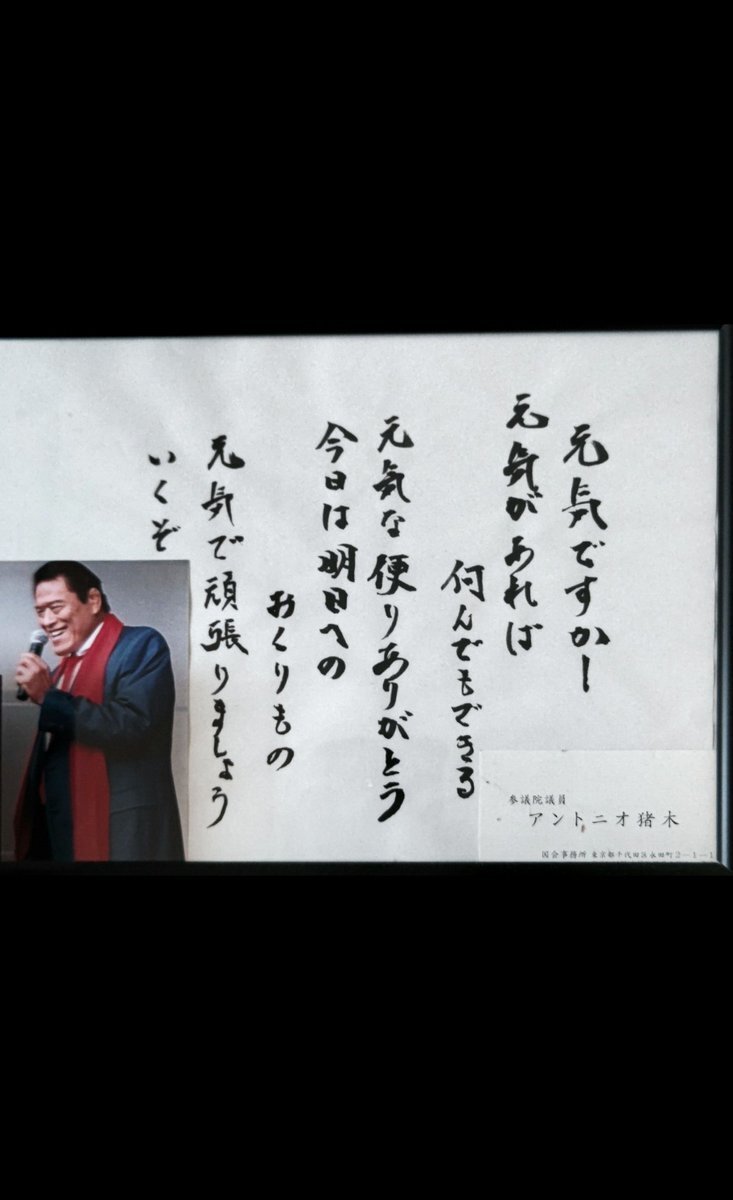 元気ですかー
元気があれば
何んでもできる
元気な便りありがとう
今日は明日への
おくりもの
元気で頑張りましょう
いくぞ
参議院議員
アントニオ猪木
国会事務所 東京都千代田区永田町2-1-1